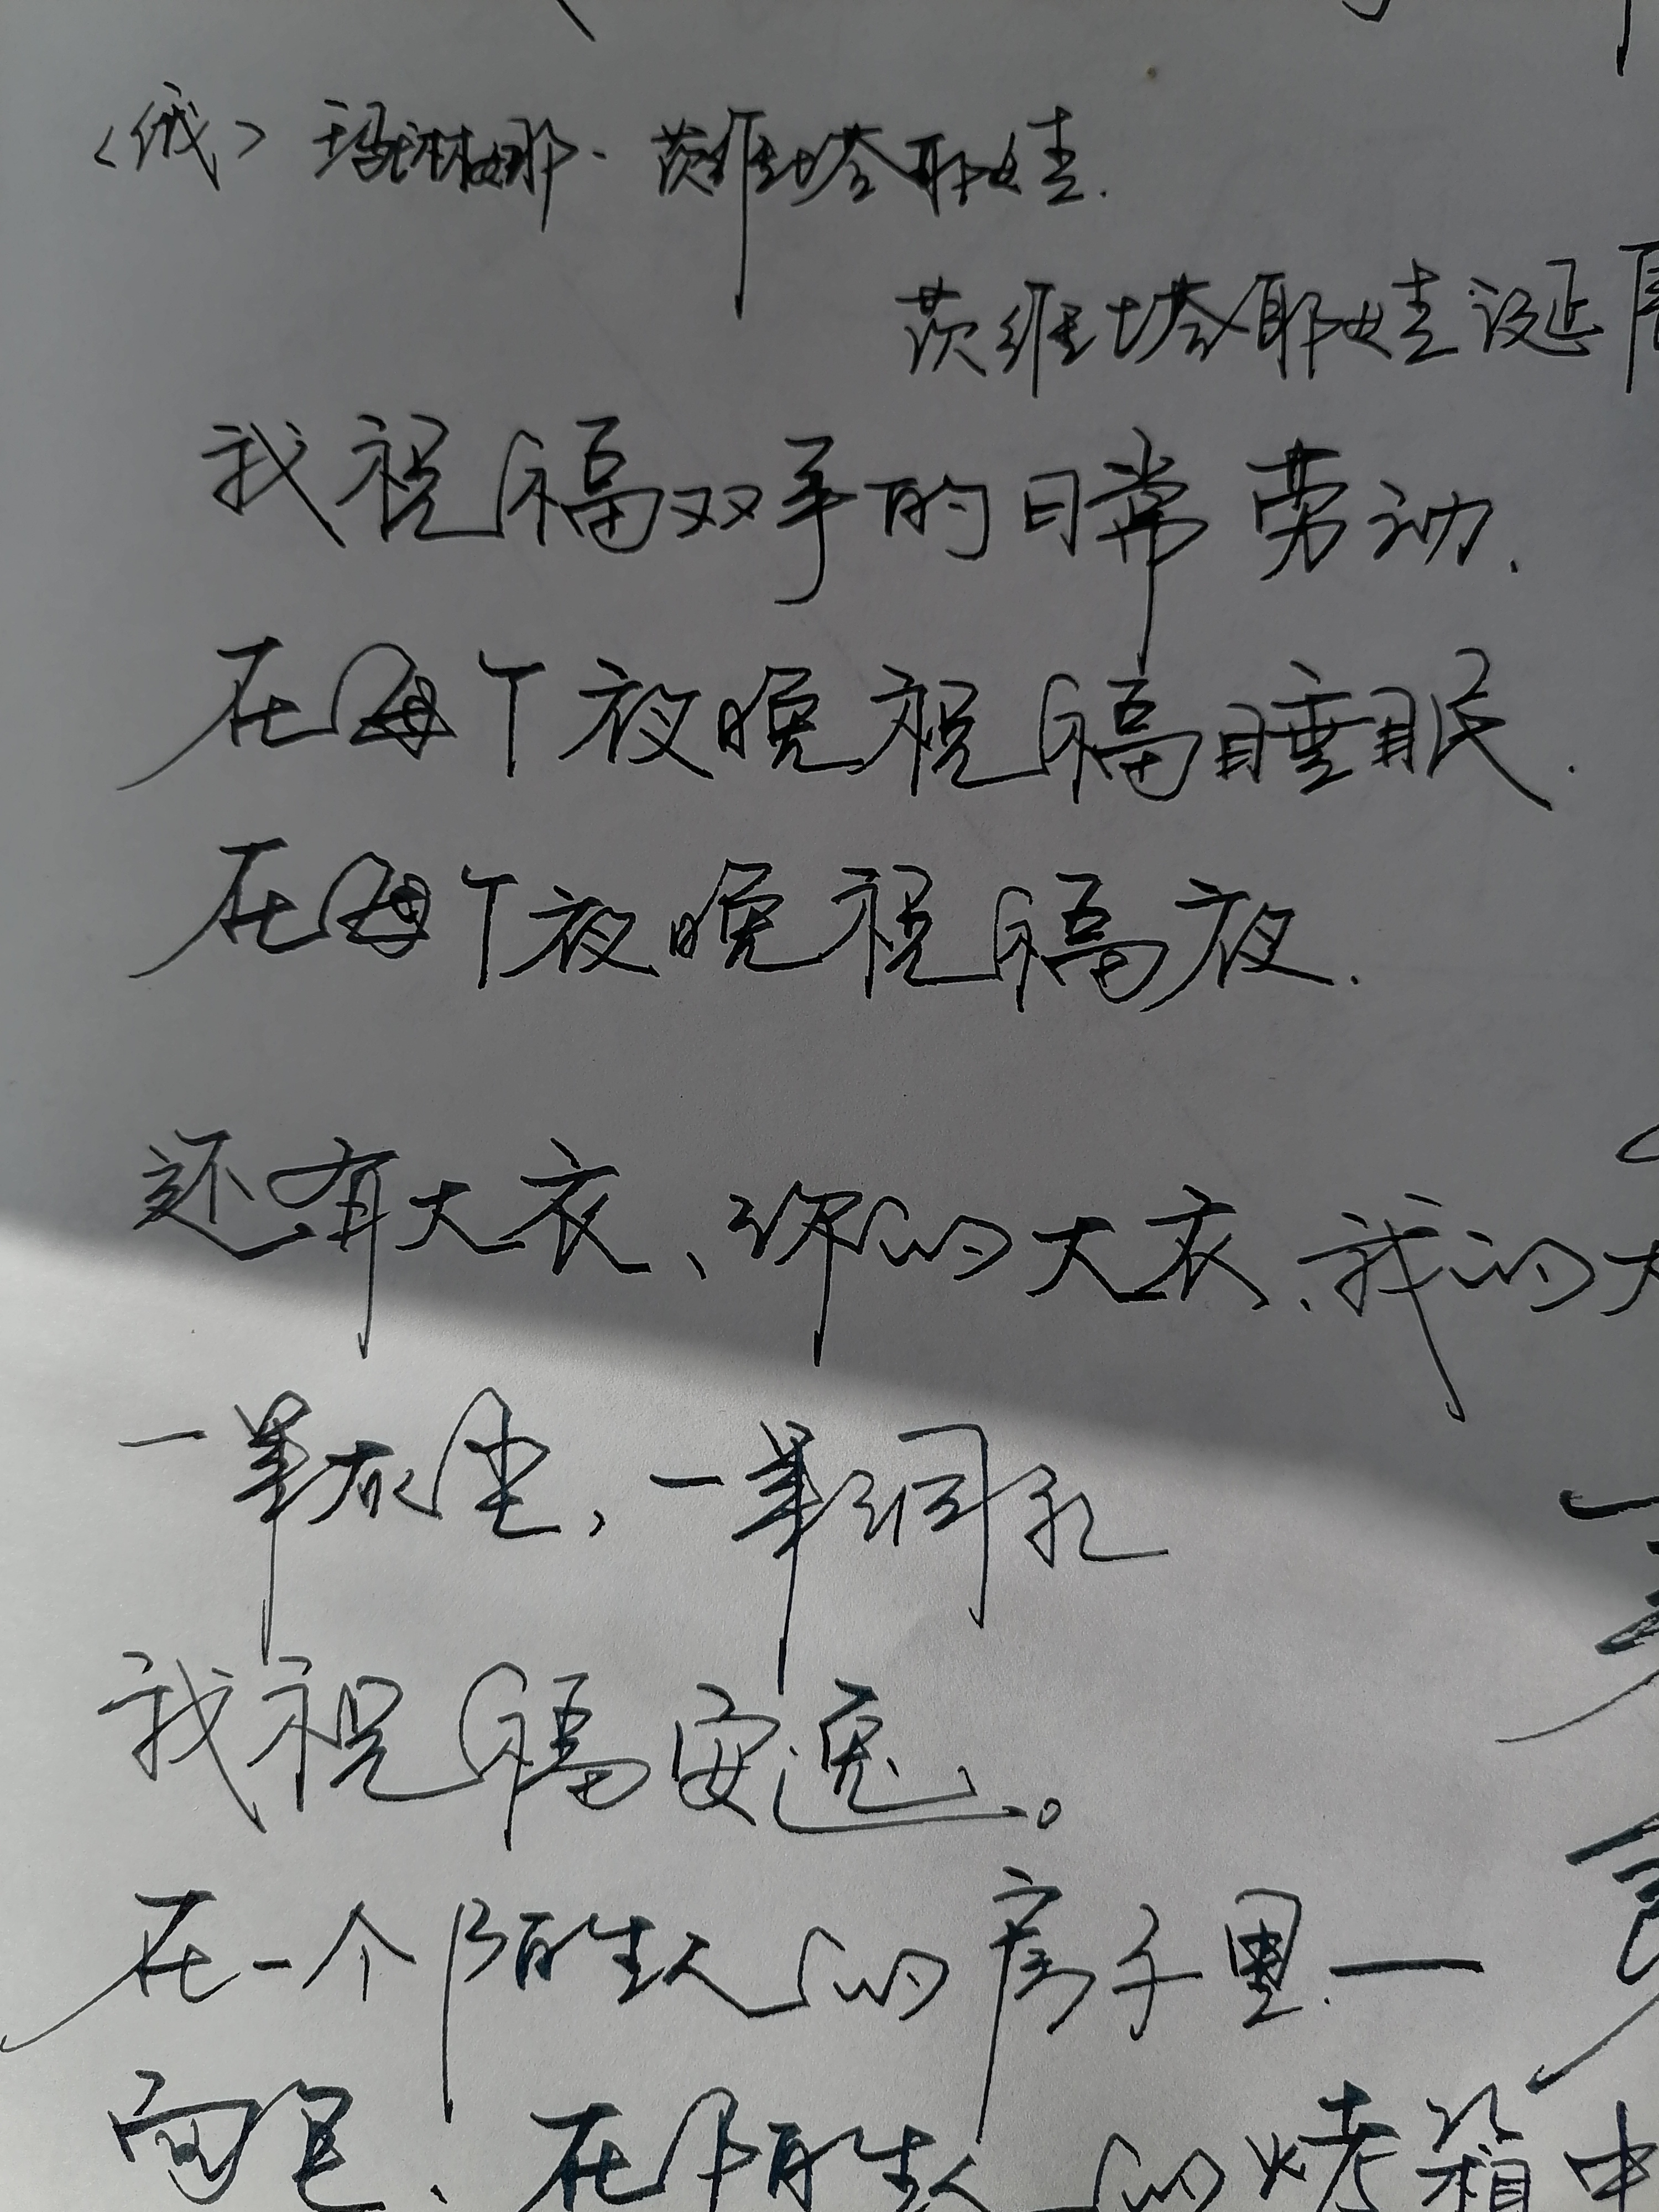 <俄> 玛琳娜·茨维塔耶娃.
茨维塔耶娃诞周
我祝福双手的日常劳动.
在每个夜晚祝福睡眠.
在每个夜晚祝福夜.
还有大衣、你的大衣、我的大
一半灰尘,一半洞孔
我祝福安逸。
在一个陌生人的房子里—
面包、在陌生人的烤箱中